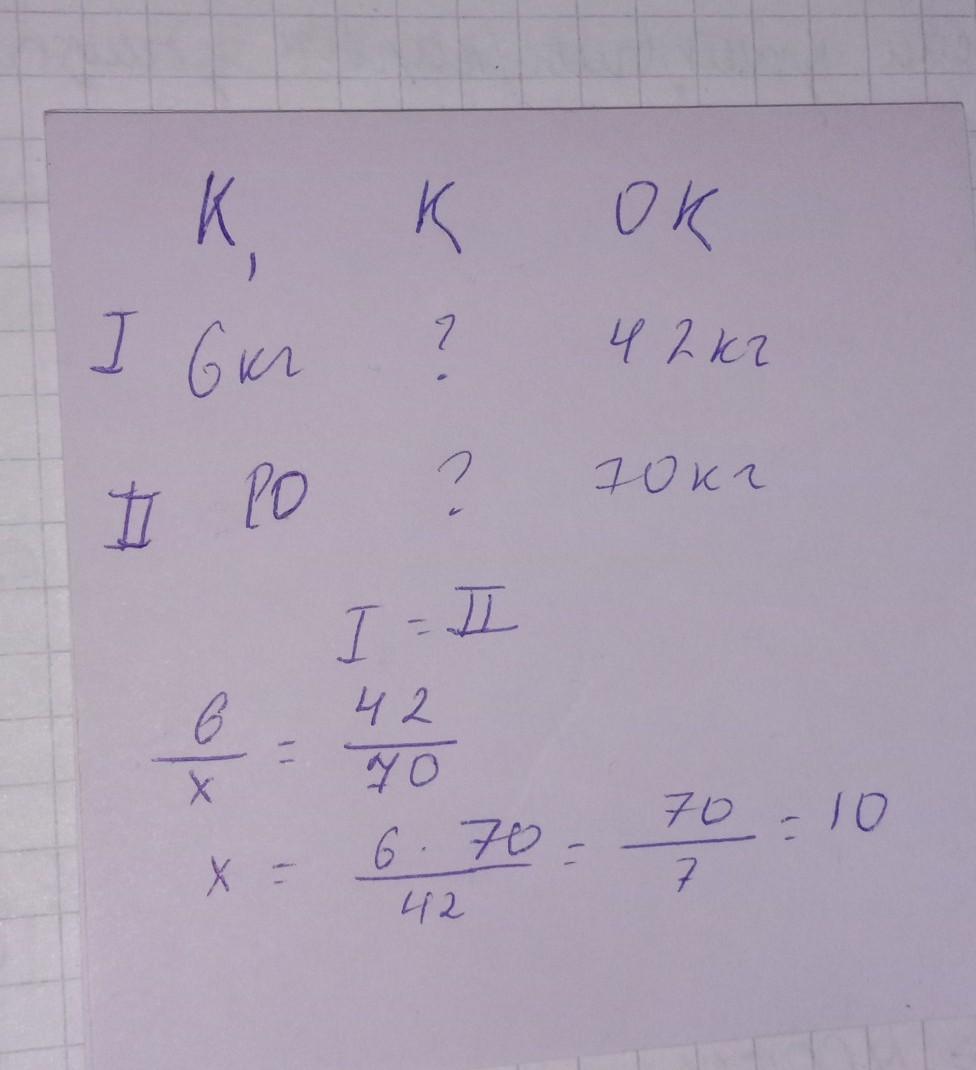 К, К ОК
I 6кг ? 42кг
II 10 ? 70кг
I = II
6/x = 42/70
x = 6 · 70/42 = 70/7 = 10